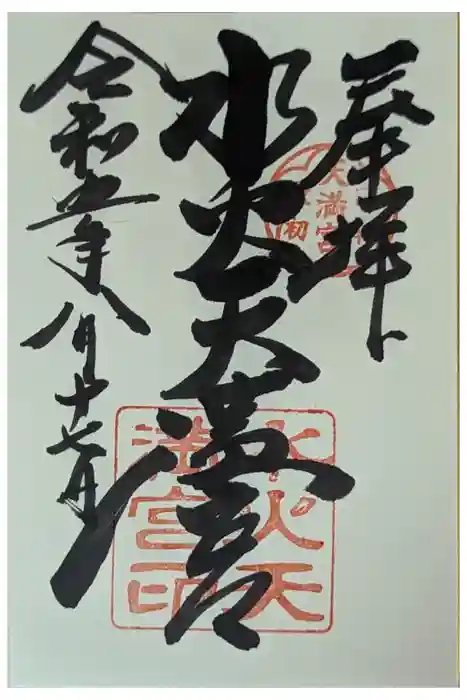 奉拝
天満宮
水火天満宮
水火天
満宮印
令和五年八月十七日